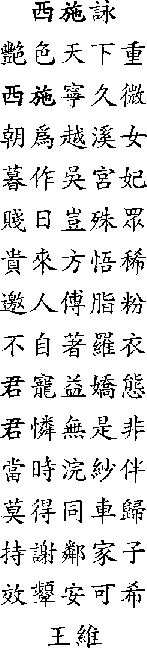 西施詠
艷色天下重
西施寧久微
朝為越溪女
暮作吳宮妃
賤日豈殊眾
貴來方悟稀
邀人傅脂粉
不自著羅衣
君寵益嬌態
君憐無是非
當時浣紗伴
莫得同車歸
持謝鄰家子
效顰安可希
王維